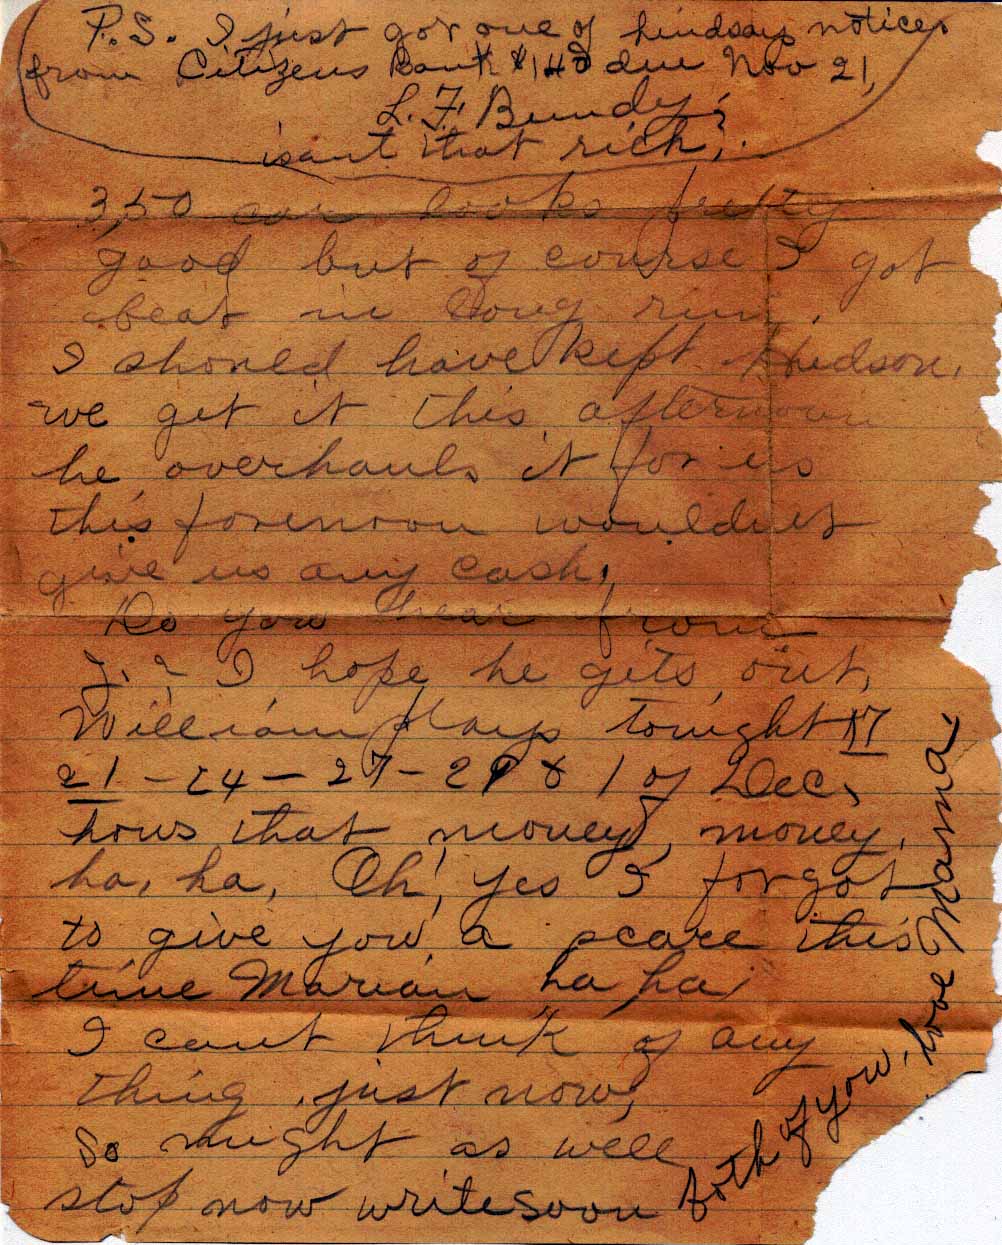 P.S. I just got one of Lindsays notices
from Citizens Bank $140 due Nov 21,
L. F. Bundy,
isant that rich,.
3,50 car looks pretty
good but of course I got
beat in long run.
I should have kept Hudson.
we get it this afternoon
he overhauls it for us
this forenoon wouldnt
give us any cash.
Do you hear from
J. - I hope he gets out,
William plays tonight 17
21 - 24 - 27 - 29 & 1 of Dec,
hows that money, money,
ha, ha, Oh, yes I forgot
to give you a scare this
time Marian ha ha
I cant think of any
thing just now,
So might as well
stop now write soon
both of you, love Mama